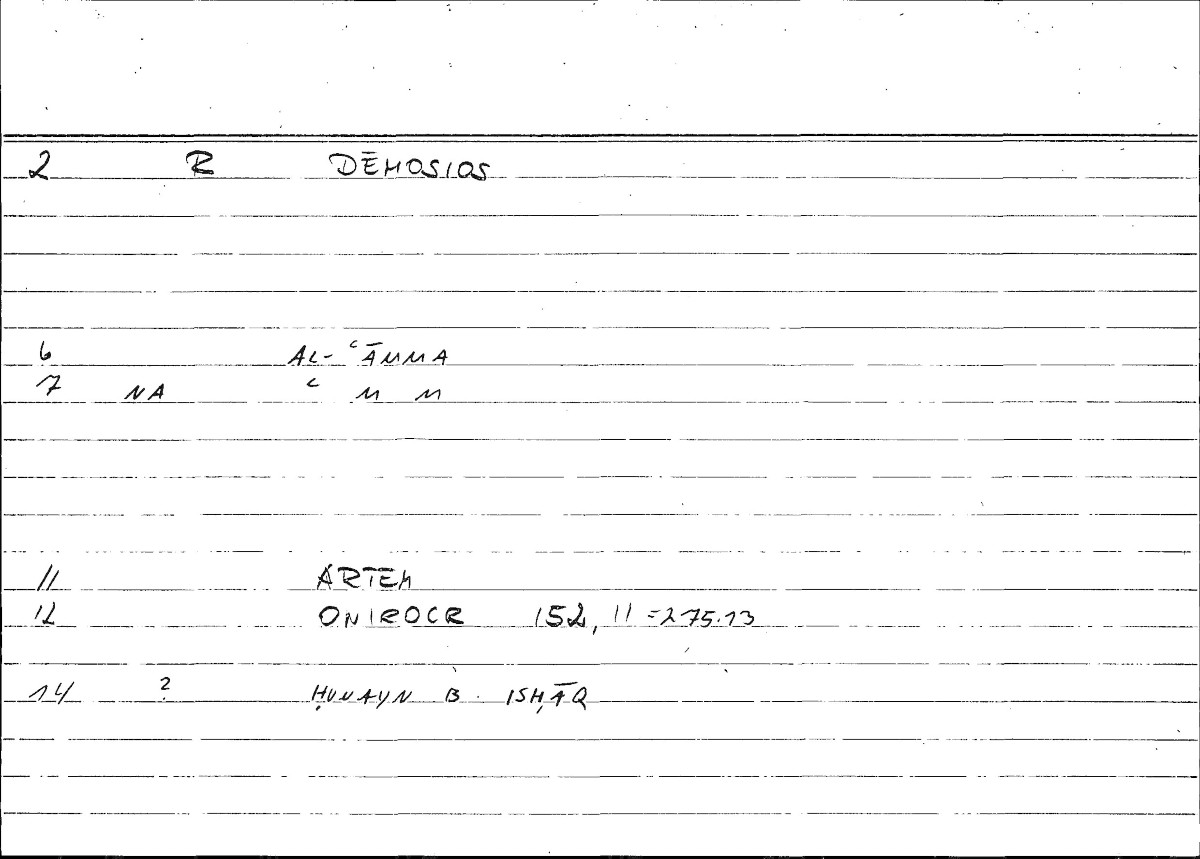 2 R DĒMOSIOS
6 AL-ʿĀMMA
7 NA ʿ M M
11 ARTEM
12 ONIROCR 152, 11 =275.13
14 ? ḤUNAYN B. ISḤĀQ